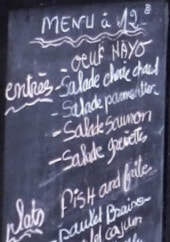 MENU à 12
- OEUF MAYO
entrées - Salade chèvre chaud
- Salade parmentier
- Salade Saumon
- Salade crevettes
plats FISH and frites
poulet Braisé